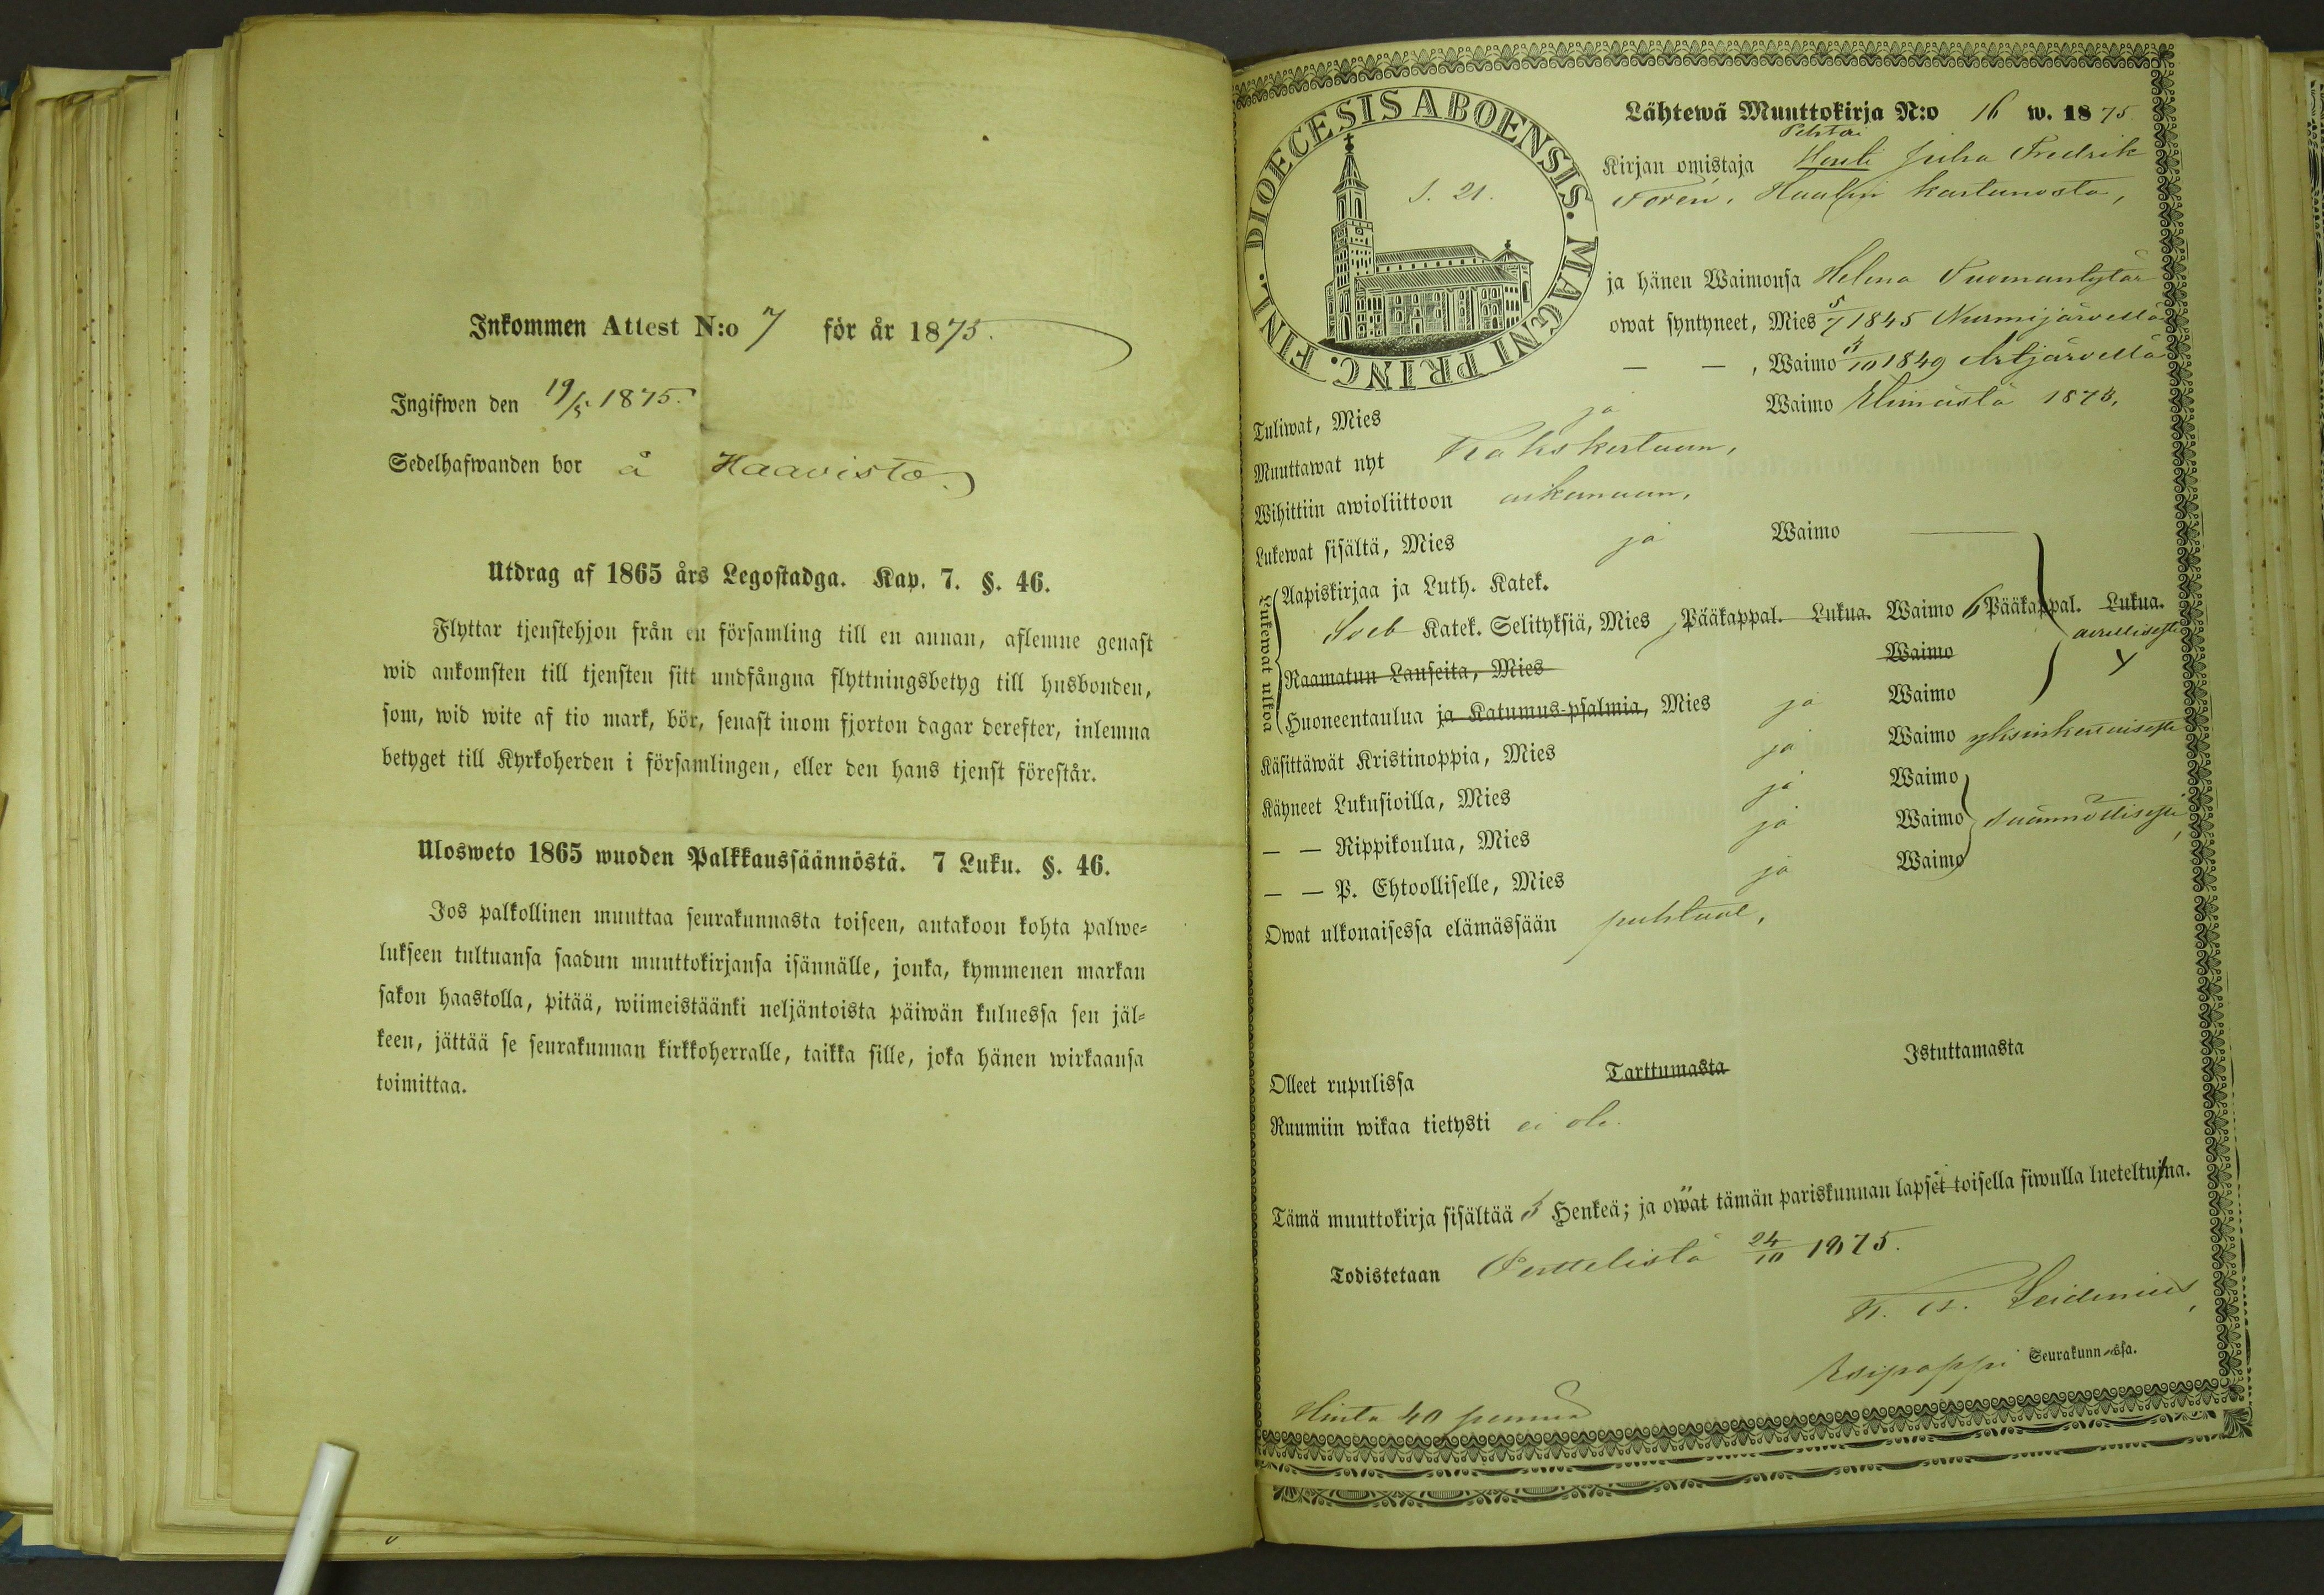 Inkommen Attest N:o 7 för år 1875.
Ingifwen den 19/5 1875.
Sedelhafwanden bor å Haavisto.
Utdrag af 1865 års Legostadga. Kap. 7. §. 46.
Flyttar tjenstehjon från en församling till en annan, aflemne genast
wid ankomsten till tjensten sitt undfångna flyttningsbetyg till husbonden,
som, wid wite af tio mark, bör, senast inom fjorton dagar derefter, inlemna
betyget till Kyrkoherden i församlingen, eller den hans tjenst förestår.
Ulosweto 1865 wuoden Palkkaussäännöstä. 7 Luku. §. 46.
Jos palkollinen muuttaa seurakunnasta toiseen, antakoon kohta palwe=
lukseen tultuansa saadun muuttokirjansa isännälle, jonka, kymmenen markan
sakon haastolla, pitää, wiimeistäänki neljäntoista päiwän kuluessa sen jäl=
keen, jättää se seurakunnan kirkkoherralle, taikka sille, joka hänen wirkaansa
toimittaa.
DIOECESIS ABOENSIS. MAGNI PRINC. FINL.
S. 21.
Lähtewä Muuttokirja N:o 16 w. 1875.
Pehtori
Kirjan omistaja Juha Fredrik
Forén, kartanosta,
ja hänen Waimonsa Helena Tuomantytär
owat syntyneet, Mies 5/7 1845 Nurmijärvellä
— — , Waimo 4/10 1849 Artjärvellä
Tuliwat, Mies ja Waimo Elimäestä 1873,
Muuttawat nyt Kakskertaan,
Wihittiin awioliittoon aikanaan,
Lukewat sisältä, Mies ja Waimo —
Lukewat ulkoa
Aapiskirjaa ja Luth. Katek.
Soeb Katek. Selityksiä, Mies Pääkappal. Lukua. Waimo 6 Pääkappal. Lukua.
Raamatun Lauseita, Mies Waimo
Huoneentaulua ja Katumus-psalmia, Mies ja Waimo
Käsittäwät Kristinoppia, Mies ja Waimo yksinkertaisesti
Käyneet Lukusioilla, Mies ja Waimo
— — Rippikoulua, Mies ja Waimo säännöllisesti,
— — P. Ehtoolliselle, Mies ja Waimo
Owat ulkonaisessa elämässään puhtaat,
Olleet rupulissa Tarttumasta Istuttamasta
Ruumiin wikaa tietysti ei ole.
Tämä muuttokirja sisältää 3 Henkeä; ja owat tämän pariskunnan lapset toisella siwulla lueteltuina.
Todistetaan Perttelistä 24/10 1875.
Leidenius,
Esipappi Seurakunnassa.
Hinta 40 penniä